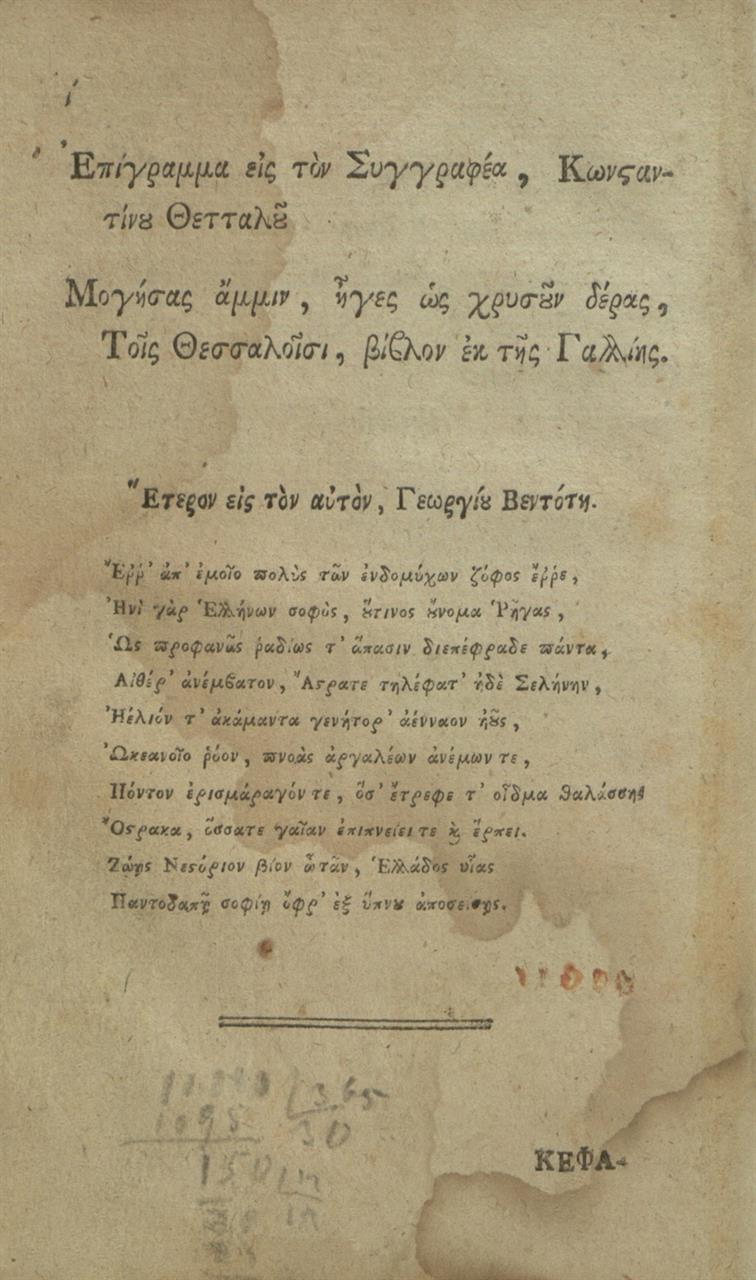 Ἐπίγραμμα εἰς τὸν Συγγραφέα, Κωνϛαν-
τίνȣ Θετταλȣ͂
Μογήσας ἄμμιν, ἦγες ὡς χρυσȣ͂ν δέρας,
Τοῖς Θεσσαλοῖσι, βίϐλον ἐκ τῆς Γαλλίης.
Ἕτερον εἰς τὸν αὐτὸν, Γεωργίȣ Βεντότη.
Ἔῤῥ' ἀπ' ἐμοῖο πολὺς τῶν ἐνδομύχων ζόφος ἔῤῥε,
Ἠνὶ γὰρ Ἑλλήνων σοφὸς, ȣ̔́τινος ȣ̓́νομα Ῥήγας,
Ὡς προφανῶς ῥᾳδίως τ' ἅπασιν διεπέφραδε πάντα,
Αἰθέρ' ἀνέμϐατον, Ἄϛρατε τηλέφατ' ἠδὲ Σελήνην,
Ἠέλιόν τ' ἀκάμαντα γενήτορ' ἀένναον ἠȣ͂ς,
Ὠκεανοῖο ῥόον, πνοὰς ἀργαλέων ἀνέμων τε,
Πόντον ἐρισμάραγόν τε, ὅσ' ἔτρεφε τ' οἶδμα θαλάσσης
Ὄϛρακα, ὅσσατε γαῖαν ἐπιπνείει τε ϗ ἕρπει.
Ζώῃς Νεϛόριον βίον ὦ τᾶν, Ἑλλάδος υἷας
Παντοδαπῇ σοφίῃ ὄφρ' ἐξ ὕπνȣ ἀποσείσῃς.
365
1095 30
150
ΚΕΦΑ-